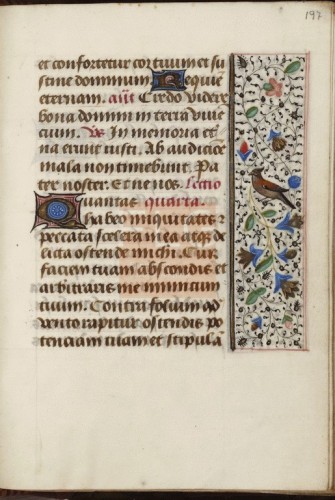 197
et confortetur cor tuum et su
stine dominum. Requie
eternam. añt Credo videre
bona domini in terra vive
cium. Vs In memoria et
na erunt iusti. Ab auditice
mala non timebunt. Pa
ter noster. Et ne nos. Lectio
Quantas quarta.
habeo iniquitates et
peccata scelera mea atque de
licta ostende michi. Cur
faciem tuam abscondis et
arbitraris me inimicum
tuum. Contra folium qd
vento rapitur ostendis po
tenciam tuam et stipula